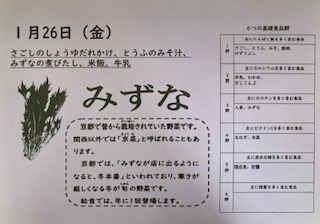 1月26日(金)
さごしのしょうゆだれかけ、とうふのみそ汁、
みずなの煮びたし、米飯、牛乳
みずな
京都で昔から栽培されていた野菜です。
関西以外では「京菜」と呼ばれることもあ
ります。
京都では、「みずなが店に出るように
なると、冬本番」といわれており、寒さが
厳しくなる冬が旬の野菜です。
給食では、年に1回登場します。
6つの基礎食品群
1群
主にたんぱく質を多く含む食品
さごし、とうふ、みそ、
2群
主にカルシウムを多く含む食品
牛乳、わかめ、
だしこんぶ
3群
主にカロテンを多く含む食品
人参、みずな
4群
主にビタミンCを多く含む食品
玉ねぎ、白菜
5群
主に炭水化物を多く含む食品
精白米、砂糖
6群
主に脂質を多く含む食品